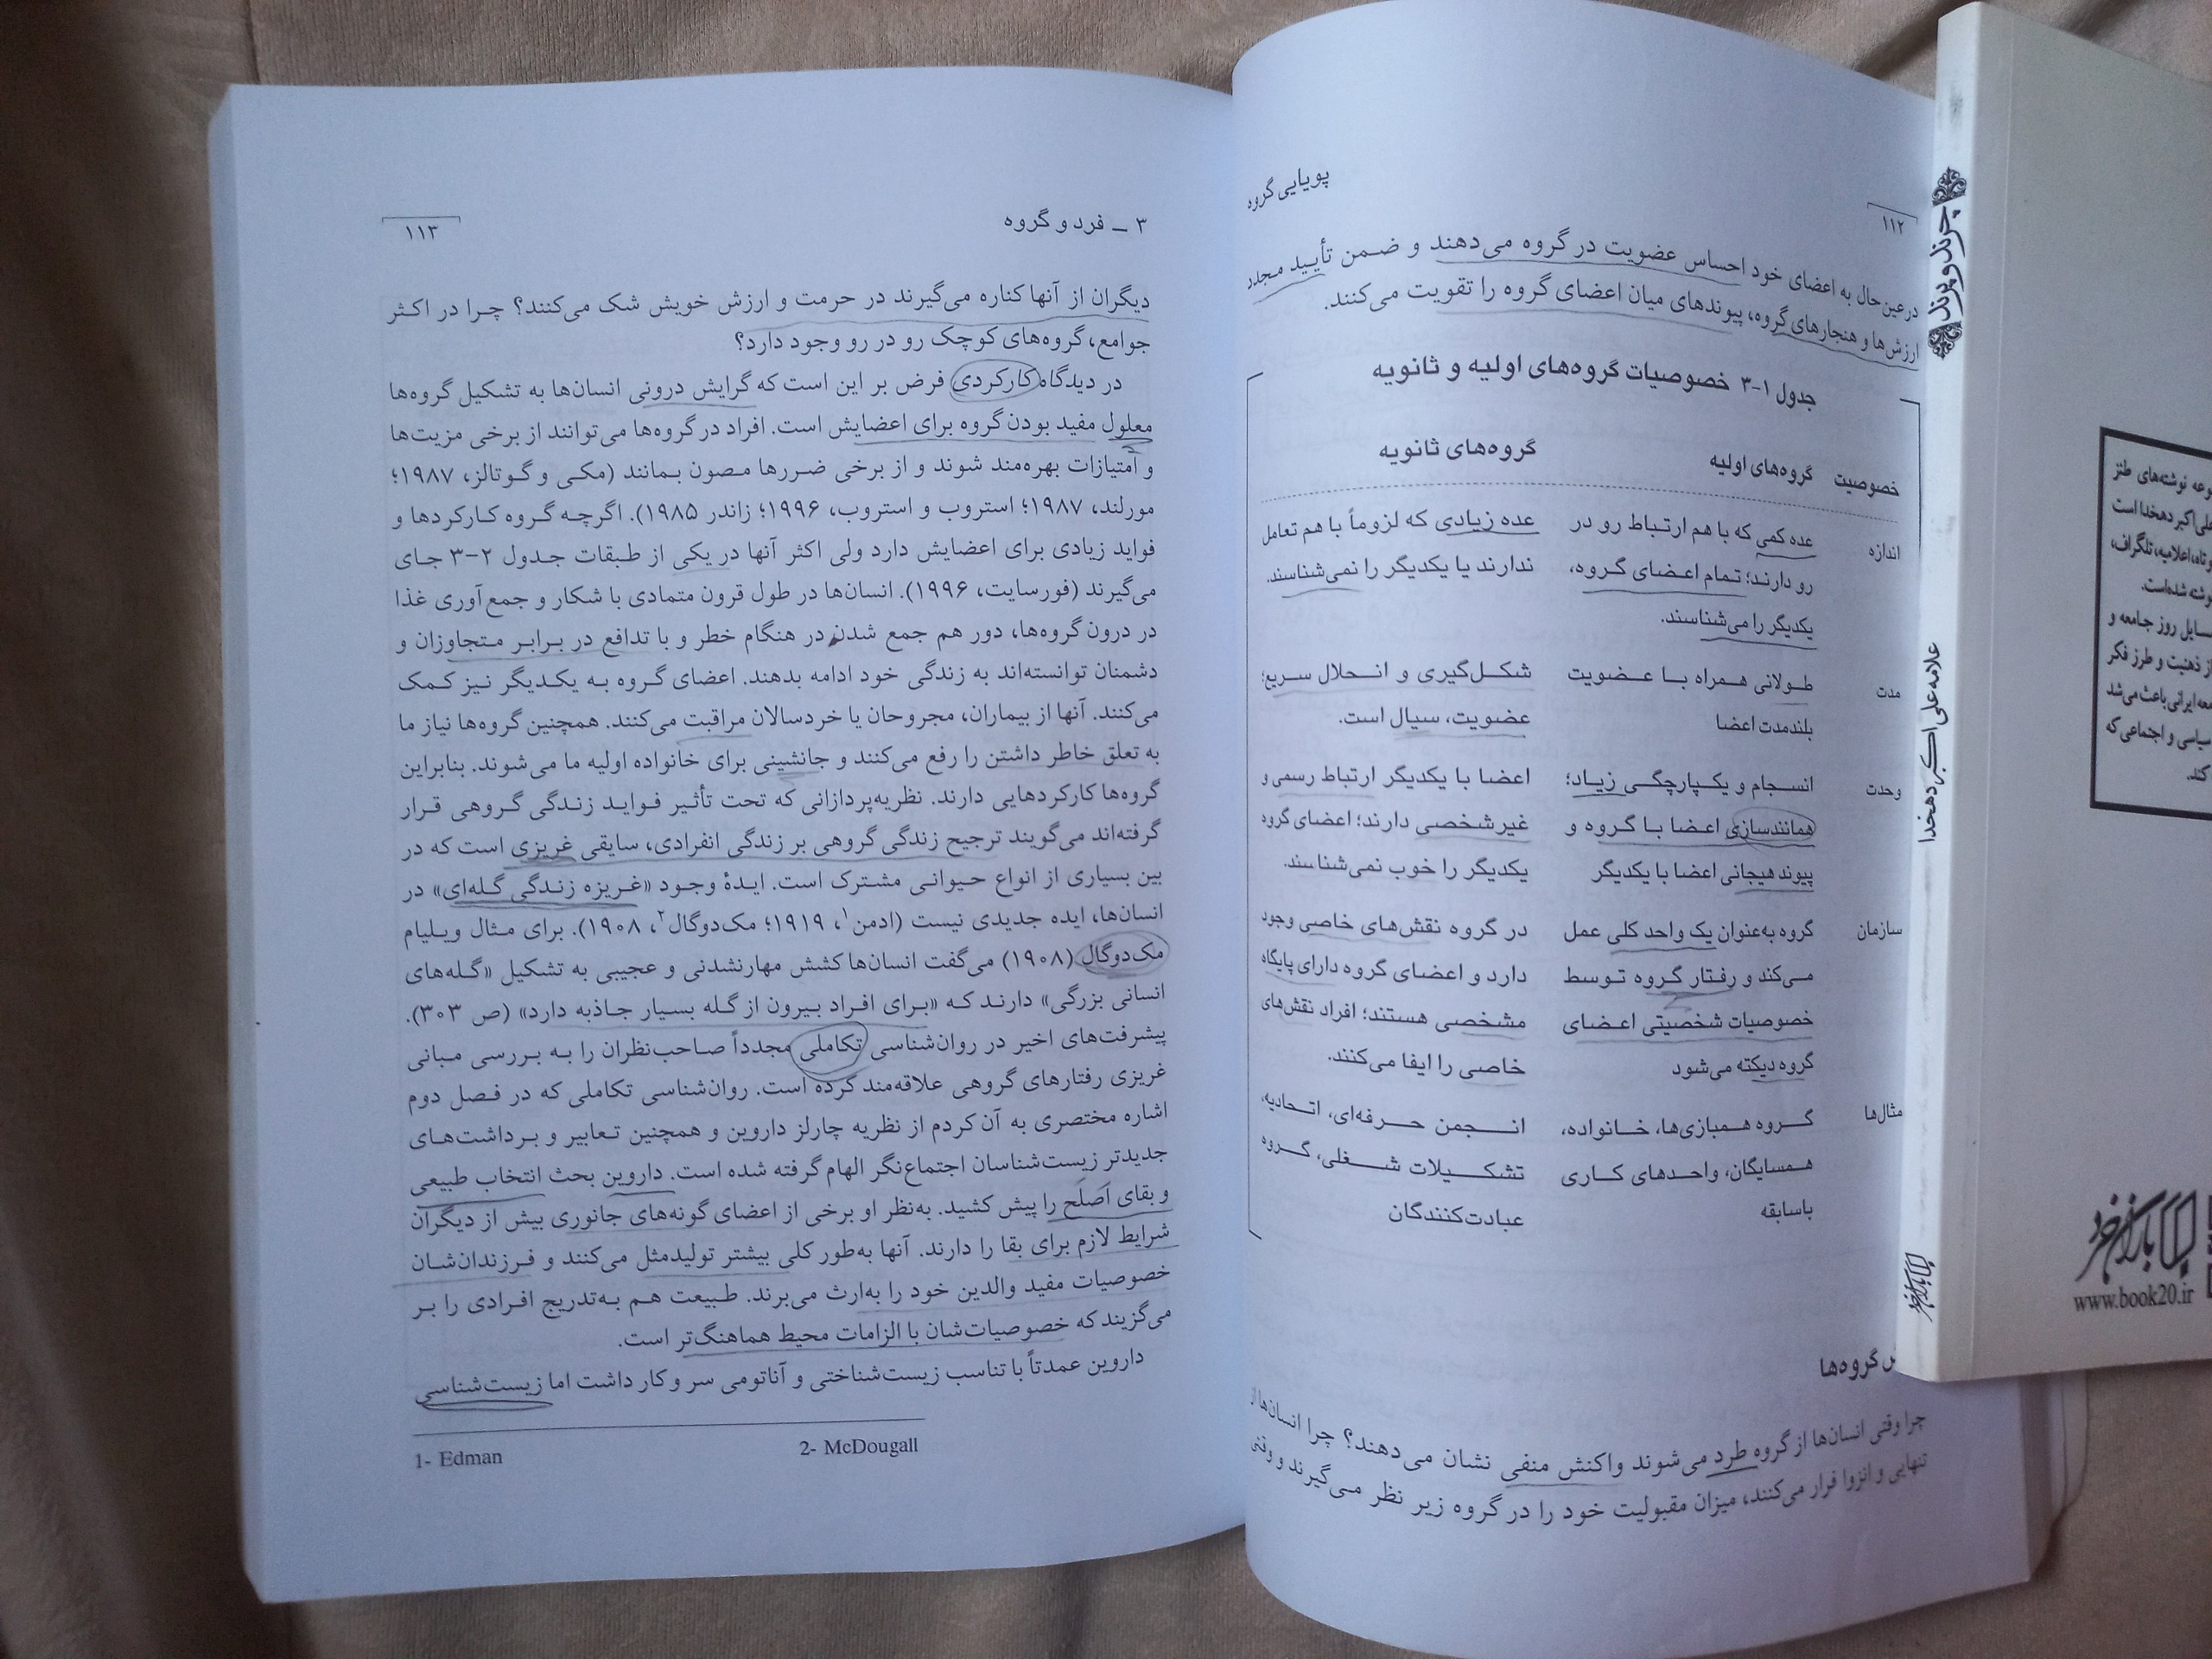 پویایی گروه
۱۱۲
درعین‌حال به اعضای خود احساس عضویت در گروه می‌دهند و ضمن تأیید مجدد
ارزش‌ها و هنجارهای گروه، پیوندهای میان اعضای گروه را تقویت می‌کنند.
جدول ۱-۳ خصوصیات گروه‌های اولیه و ثانویه
خصوصیت گروه‌های اولیه گروه‌های ثانویه
اندازه عده کمی که با هم ارتباط رو در عده زیادی که لزوماً با هم تعامل
رو دارند؛ تمام اعضای گروه، ندارند یا یکدیگر را نمی‌شناسند.
یکدیگر را می‌شناسند.
مدت طولانی همراه با عضویت شکل‌گیری و انحلال سریع؛
بلندمدت اعضا عضویت، سیال است.
وحدت انسجام و یکپارچگی زیاد؛ اعضا با یکدیگر ارتباط رسمی و
همانندسازی اعضا با گروه و غیرشخصی دارند؛ اعضای گروه
پیوند هیجانی اعضا با یکدیگر یکدیگر را خوب نمی‌شناسند.
سازمان گروه به‌عنوان یک واحد کلی عمل در گروه نقش‌های خاصی وجود
می‌کند و رفتار گروه توسط دارد و اعضای گروه دارای پایگاه
خصوصیات شخصیتی اعضای مشخصی هستند؛ افراد نقش‌های
گروه دیکته می‌شود خاصی را ایفا می‌کنند.
مثال‌ها گروه همبازی‌ها، خانواده، انجمن حرفه‌ای، اتحادیه،
همسایگان، واحدهای کاری تشکیلات شغلی، گروه
باسابقه عبادت‌کنندگان
گروه‌ها
چرا وقتی انسان‌ها از گروه طرد می‌شوند واکنش منفی نشان می‌دهند؟ چرا انسان‌ها از
تنهایی و انزوا فرار می‌کنند، میزان مقبولیت خود را در گروه زیر نظر می‌گیرند و وقتی
۳ ـ فرد و گروه
۱۱۳
دیگران از آنها کناره می‌گیرند در حرمت و ارزش خویش شک می‌کنند؟ چرا در اکثر
جوامع، گروه‌های کوچک رو در رو وجود دارد؟
در دیدگاه کارکردی فرض بر این است که گرایش درونی انسان‌ها به تشکیل گروه‌ها
معلول مفید بودن گروه برای اعضایش است. افراد در گروه‌ها می‌توانند از برخی مزیت‌ها
و امتیازات بهره‌مند شوند و از برخی ضررها مصون بمانند (مکی و گوتالز، ۱۹۸۷؛
مورلند، ۱۹۸۷؛ استروب و استروب، ۱۹۹۶؛ زاندر ۱۹۸۵). اگرچه گروه کارکردها و
فواید زیادی برای اعضایش دارد ولی اکثر آنها در یکی از طبقات جدول ۲-۳ جای
می‌گیرند (فورسایت، ۱۹۹۶). انسان‌ها در طول قرون متمادی با شکار و جمع‌آوری غذا
در درون گروه‌ها، دور هم جمع شدن در هنگام خطر و با تدافع در برابر متجاوزان و
دشمنان توانسته‌اند به زندگی خود ادامه بدهند. اعضای گروه به یکدیگر نیز کمک
می‌کنند. آنها از بیماران، مجروحان یا خردسالان مراقبت می‌کنند. همچنین گروه‌ها نیاز ما
به تعلق خاطر داشتن را رفع می‌کنند و جانشینی برای خانواده اولیه ما می‌شوند. بنابراین
گروه‌ها کارکردهایی دارند. نظریه‌پردازانی که تحت تأثیر فواید زندگی گروهی قرار
گرفته‌اند می‌گویند ترجیح زندگی گروهی بر زندگی انفرادی، سایقی غریزی است که در
بین بسیاری از انواع حیوانی مشترک است. ایدهٔ وجود «غریزه زندگی گله‌ای» در
انسان‌ها، ایده جدیدی نیست (ادمن۱، ۱۹۱۹؛ مک‌دوگال۲، ۱۹۰۸). برای مثال ویلیام
مک‌دوگال (۱۹۰۸) می‌گفت انسان‌ها کشش مهارنشدنی و عجیبی به تشکیل «گله‌های
انسانی بزرگی» دارند که «برای افراد بیرون از گله بسیار جاذبه دارد» (ص ۳۰۳).
پیشرفت‌های اخیر در روان‌شناسی تکاملی مجدداً صاحب‌نظران را به بررسی مبانی
غریزی رفتارهای گروهی علاقه‌مند کرده است. روان‌شناسی تکاملی که در فصل دوم
اشاره مختصری به آن کردم از نظریه چارلز داروین و همچنین تعابیر و برداشت‌های
جدیدتر زیست‌شناسان اجتماع‌نگر الهام گرفته شده است. داروین بحث انتخاب طبیعی
و بقای اَصلَح را پیش کشید. به‌نظر او برخی از اعضای گونه‌های جانوری بیش از دیگران
شرایط لازم برای بقا را دارند. آنها به‌طور کلی بیشتر تولیدمثل می‌کنند و فرزندان‌شان
خصوصیات مفید والدین خود را به‌ارث می‌برند. طبیعت هم به‌تدریج افرادی را بر
می‌گزیند که خصوصیات‌شان با الزامات محیط هماهنگ‌تر است.
داروین عمدتاً با تناسب زیست‌شناختی و آناتومی سر و کار داشت اما زیست‌شناسی
1- Edman 2- McDougall
چرند و پرند
علامه علی اکبر دهخدا
نوشته‌های طنز
علی‌اکبر دهخدا است
اعلامیه، تلگراف،
نوشته شده‌است.
مسایل روز جامعه و
از ذهنیت و طرز فکر
ایرانی باعث می‌شد
سیاسی و اجتماعی که
کند.
www.book20.ir